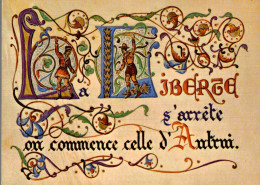 La Liberté
s'arrête
où commence celle d'Autrui.